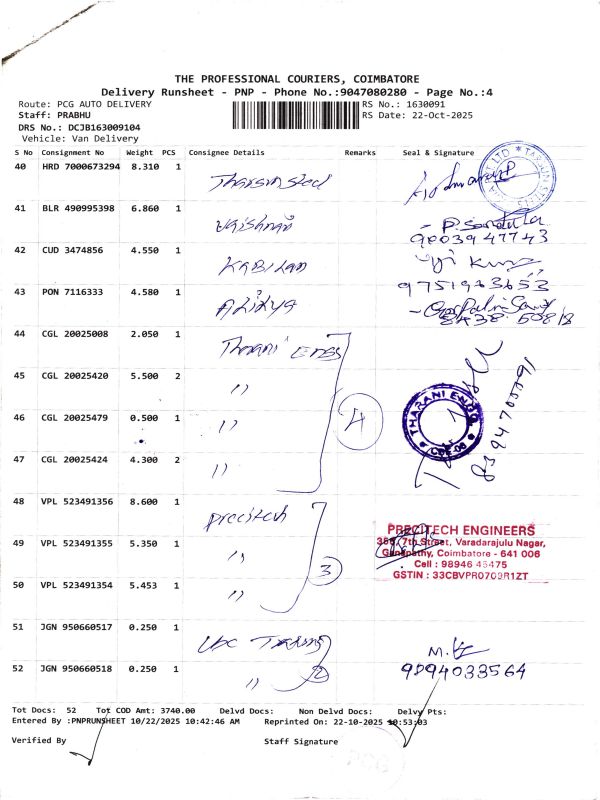 THE PROFESSIONAL COURIERS, COIMBATORE
Delivery Runsheet - PNP - Phone No.:9047080280 - Page No.:4
Route: PCG AUTO DELIVERY RS No.: 1630091
Staff: PRABHU RS Date: 22-Oct-2025
DRS No.: DCJB163009104
Vehicle: Van Delivery
S No Consignment No Weight PCS Consignee Details Remarks Seal & Signature
40 HRD 7000673294 8.310 1
41 BLR 490995398 6.860 1 Vaishnavi
9003947743
42 CUD 3474856 4.550 1 Kabilan
9751923653
43 PON 7116333 4.580 1
44 CGL 20025008 2.050 1 Tharani Engg
45 CGL 20025420 5.500 2 "
46 CGL 20025479 0.500 1 " 4 THARANI ENGG
47 CGL 20025424 4.300 2 "
48 VPL 523491356 8.600 1 Precitech
PRECITECH ENGINEERS
49 VPL 523491355 5.350 1 " 3 7th Street, Varadarajulu Nagar,
Ganapathy, Coimbatore - 641 006
Cell : 98946 45475
50 VPL 523491354 5.453 1 " GSTIN : 33CBVPR0709R1ZT
51 JGN 950660517 0.250 1
52 JGN 950660518 0.250 1 " 2 9894033564
Tot Docs: 52 Tot COD Amt: 3740.00 Delvd Docs: Non Delvd Docs: Delvy Pts:
Entered By :PNPRUNSHEET 10/22/2025 10:42:46 AM Reprinted On: 22-10-2025 10:53:03
Verified By Staff Signature